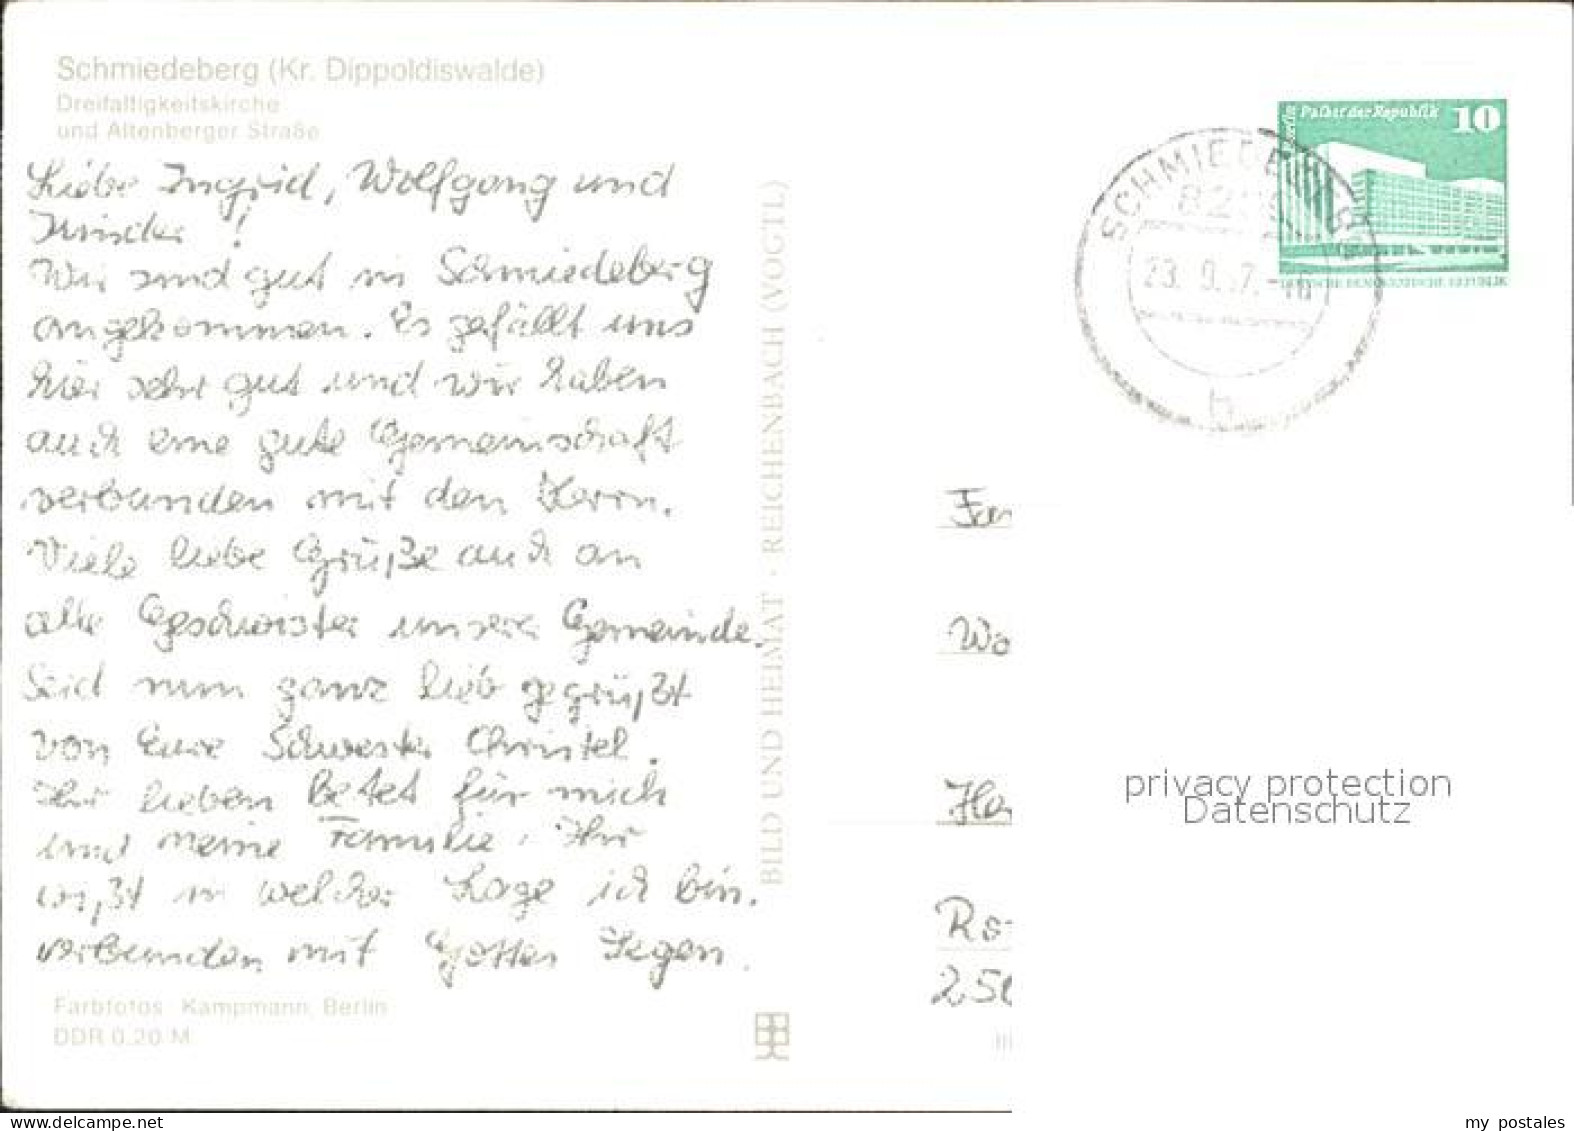 Schmiedeberg (Kr. Dippoldiswalde)
Dreifaltigkeitskirche
und Altenberger Straße
Liebe Ingrid, Wolfgang und
!
Wir sind gut in Schmiedeberg
angekommen. Es gefällt uns
hier sehr gut und wir haben
auch eine gute Gemeinschaft
verbunden mit den Herrn.
Viele liebe Grüße auch an
alle Geschwister unserer Gemeinde.
Seid nun ganz lieb gegrüßt
von Eure Schwester Christel.
Ihr lieben Betet für mich
und meine Familie. Ihr
wißt in welcher Lage ich bin.
verbunden mit Gottes Segen.
Farbfotos: Kampmann, Berlin
DDR 0,20 M
BILD UND HEIMAT · REICHENBACH (VOGTL)
Berlin Palast der Republik 10
DEUTSCHE DEMOKRATISCHE REPUBLIK
SCHMIEDEBERG
23. 9.
h
Fam
Wo
Ha
Ro
250
privacy protection
Datenschutz
my postales